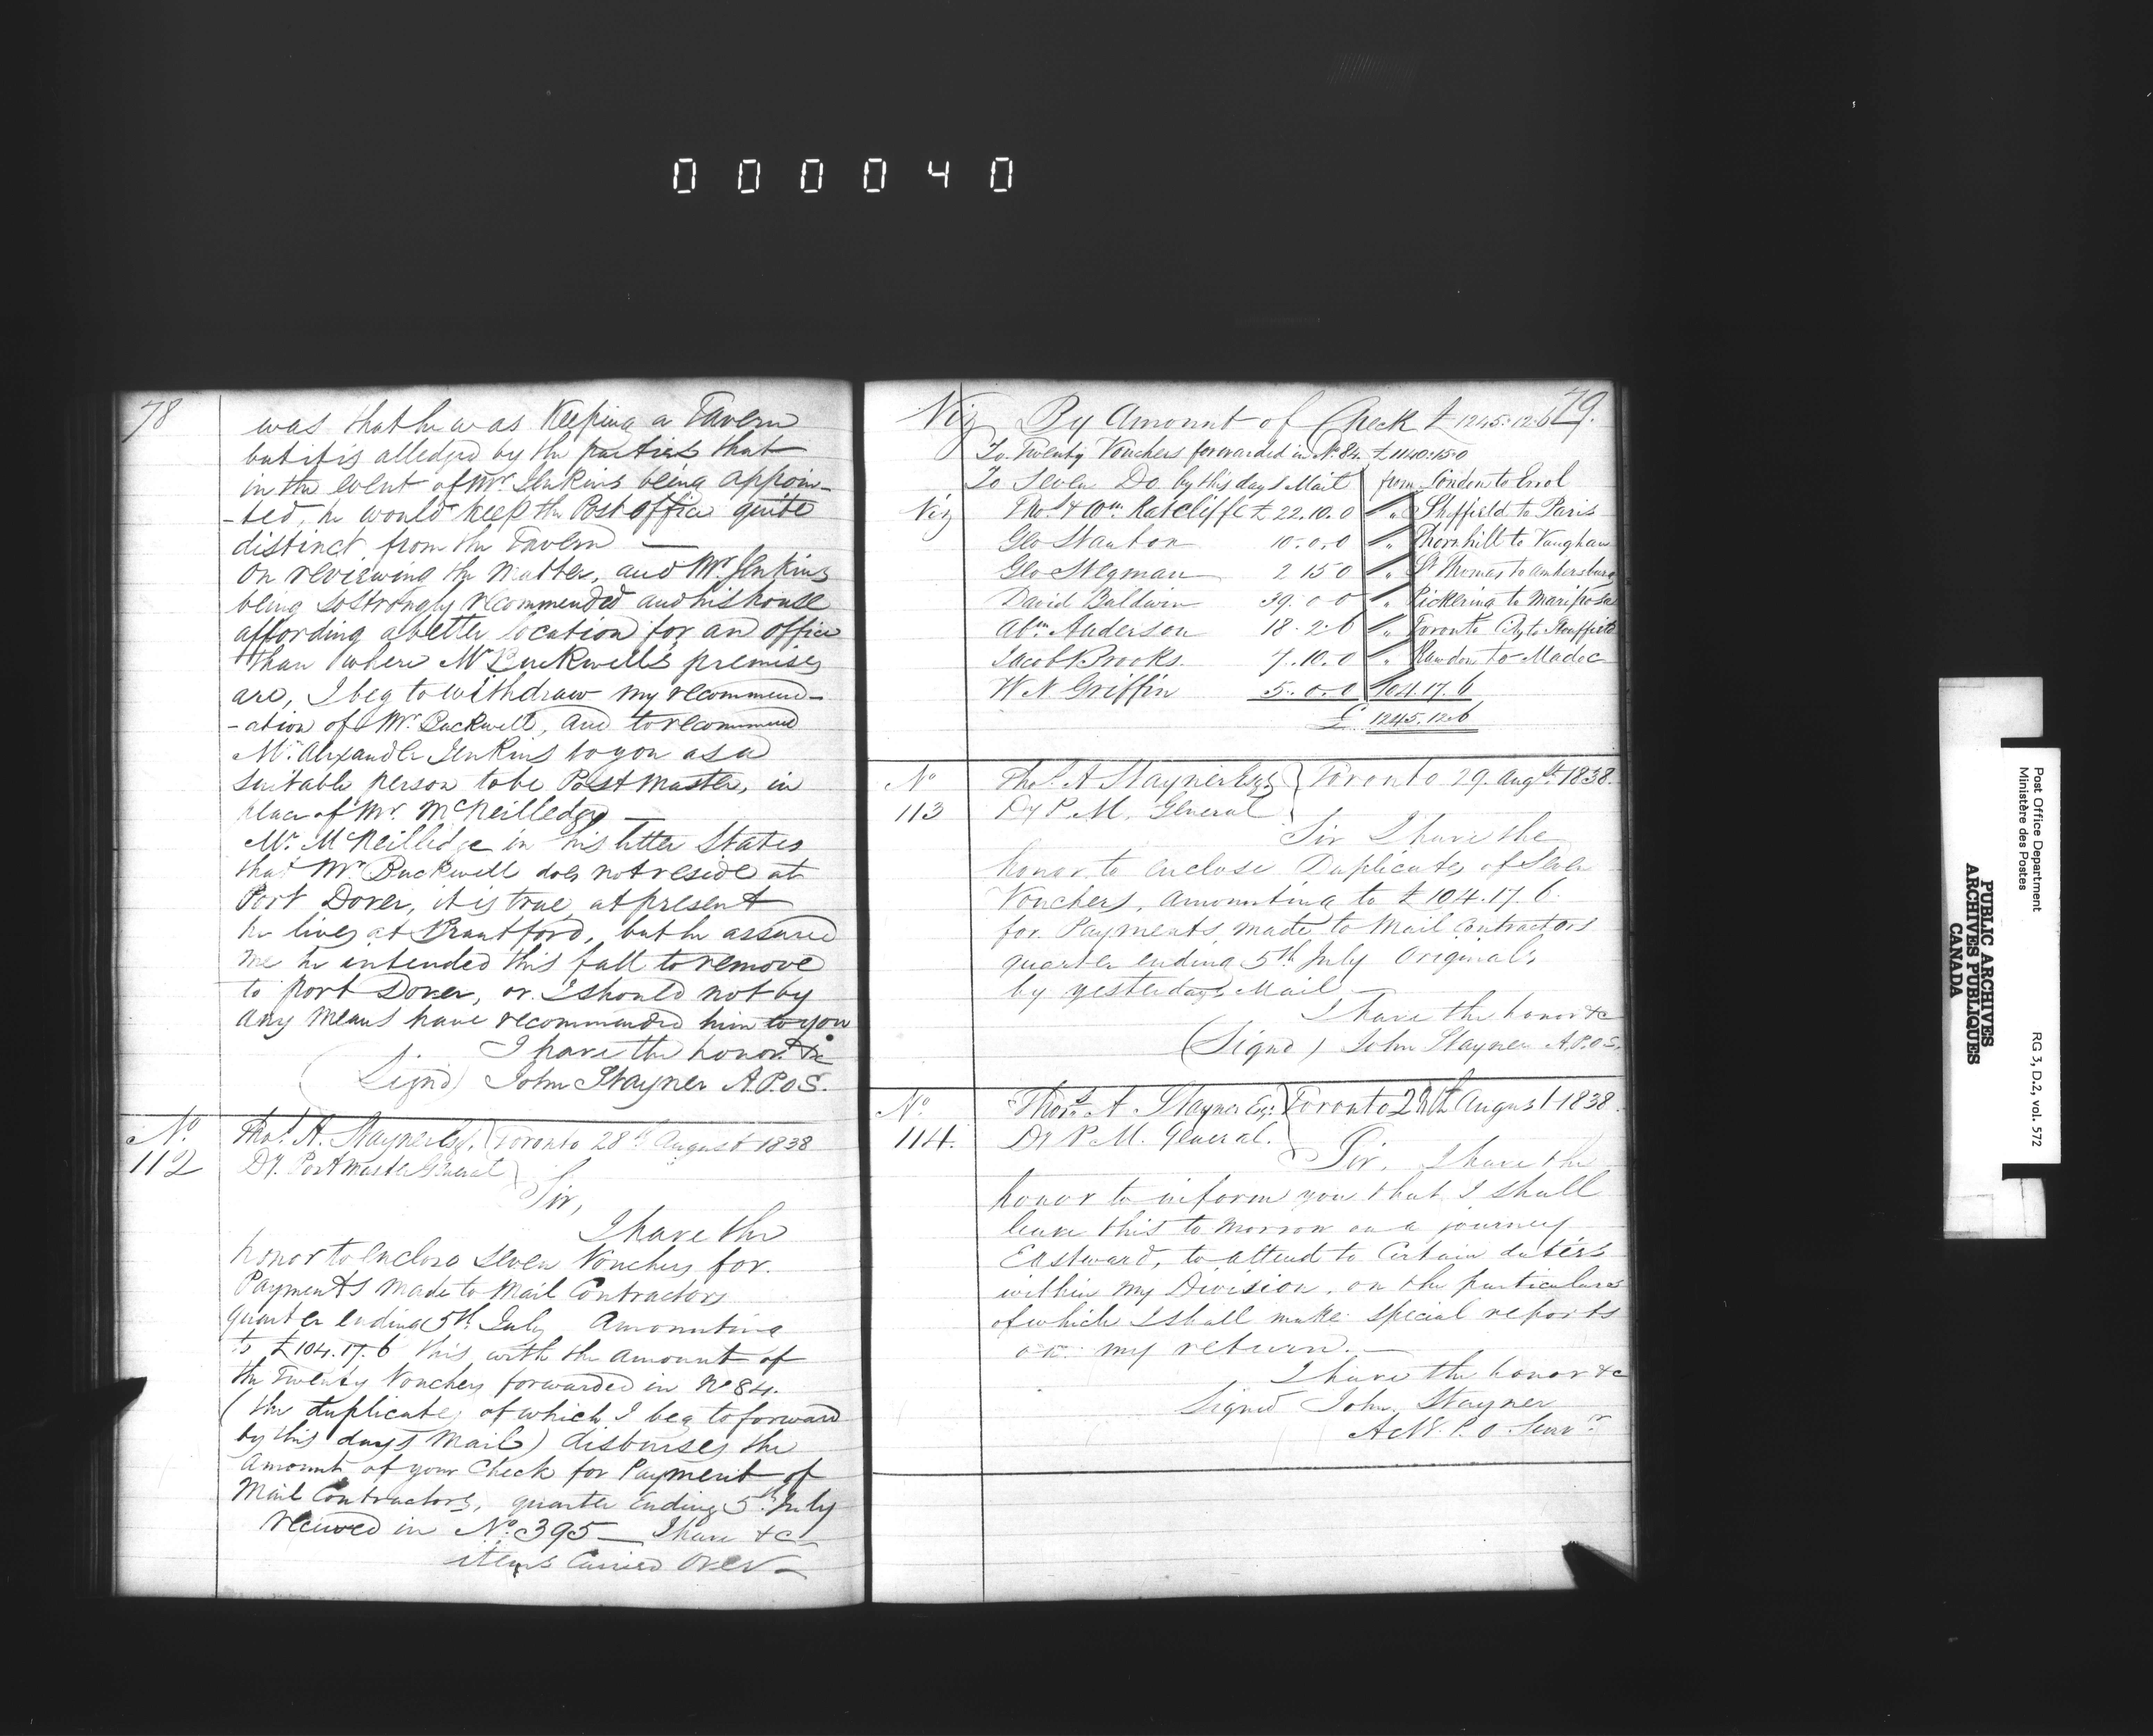 000040
78
was that he was Keeping a Tavern
but it is alledged by the parties that
in the event of Mr. Jenkins being appoin-
-ted, he would keep the Post office quite
distinct from the Tavern —
On reviewing the Matter, and Mr Jenkins
being so strongly recommended and his house
affording a better location for an office
than where Mr Buckwells premises
are, I beg to withdraw my recommend-
-ation of Mr. Buckwell, and to recommend
Mr. Alexander Jenkins to you as a
suitable person to be Post Master, in
place of Mr. McNeilledge —
Mr. McNeilledge in his letter States
that Mr Buckwell does not reside at
Port Dover, it is true, at present
he lives at Brantford, but he assured
me he intended this fall to remove
to port Dover, or I should not by
any means have recommended him to you
I have the honor &c
(Signd) John Stayner A.P.O.S.
No. 112
Thos. A. Stayner Esqr. Toronto 28th August 1838
Dy. Postmaster General
Sir,
I have the
honor to enclose seven Vouchers for
Payments made to Mail Contractors
quarter ending 5th July Amounting
to £104.17.6 this with the amount of
the Twenty Vouchers forwarded in No 84.
(the duplicates of which I beg to forward
by this days Mail) disburses the
Amount of your Check for Payment of
Mail Contractors, quarter ending 5th July
received in No. 395 — I have &c
items Carried Over —
79.
Viz By Amount of Check £1245.12.6
To Twenty Vouchers forwarded in No. 84. £1140.15.0
To Seven Do by this days Mail from London to Errol
Viz Thos. & Wm. Ratcliffe £22.10.0 " Sheffield to Paris
Geo Stanton 10.0.0 " Thornhill to Vaughan
Geo Stegman 2 15 0 " St Thomas to Amhersburg
David Baldwin 39.0 0 " Pickering to Mariposa
Abm. Anderson 18.2.6 " Toronto City to Stouffville
Jacob Brooks. 7.10.0 " Rawdon to Madoc
W N Griffin 5.0.0 104.17.6
£ 1245.12.6
No 113
Thos. A Stayner Esqr Toronto 29 Augst. 1838.
Dy P. M. General
Sir I have the
honor to enclose Duplicates of Seven
Vouchers, amounting to £104.17.6
for Payments made to Mail Contractors
quarter ending 5th July Originals
by yesterdays Mail —
I have the honor &c
(Signd) John Stayner A.P.O.S.
No. 114.
Thos. A. Stayner Esqr. Toronto 29th August 1838.
Dy P. M. General.
Sir, I have the
honor to inform you that I shall
leave this to morrow on a journey
Eastward, to attend to Certain duties
within my Division, on the particulars
of which I shall make special reports
on my return. —
I have the honor &c
Signed John Stayner
Actg. P. O. Survr.
Post Office Department
Ministère des Postes
RG 3, D.2, vol. 572
PUBLIC ARCHIVES
ARCHIVES PUBLIQUES
CANADA